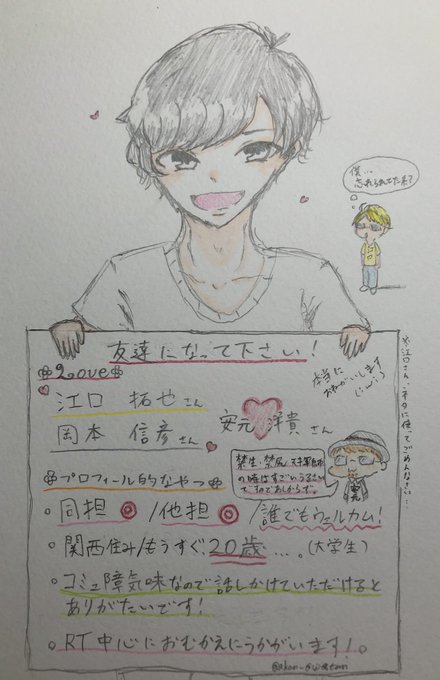 僕…
忘れられてた系?
友達になって下さい!
Love
江口 拓也さん
岡本 信彦さん
安元 洋貴さん
本当に
おねがいします
※江口さん、ネタに使ってごめんなさい…
プロフィール的なやつ
の時はすごいうるさい
のであしからず。
・同担◎/他担◎/誰でもウェルカム!
・関西住み/もうすぐ20歳…。(大学生)
・コミュ障気味なので話しかけていただけると
ありがたいです!
・RT中心におむかえにうかがいます!